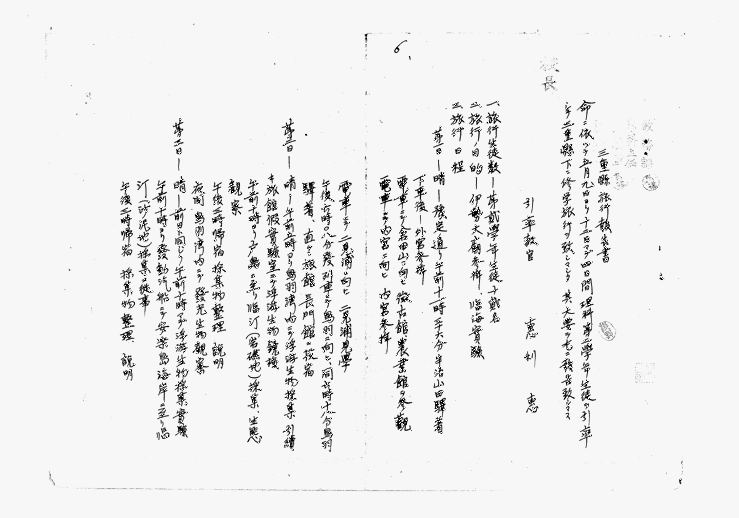 校長
6.
三重縣旅行報告書
命ニ依リテ五月九日ヨリ十二日マデ四日間理科第二學年生徒ヲ引率
シテ三重縣下ニ修学旅行ヲ致シマシタ 其大要左ニ報告致シマス
引率教官 惠利惠
一、旅行生徒数ー第貳學年生徒十貳名
二、旅行ノ目的ー伊勢大廟参拝、臨海實驗
三、旅行日程
第一日ー晴ー豫定通リ午前十一時二十六分宇治山田驛着
下車後ー外宮参拝
電車ニテ倉田山ニ向ヒ徴古館農業館ヲ参觀
電車ニテ内宮ニ向ヒ 内宮参拝
電車ニテ二見浦ニ向ヒ 二見浦見學
午後六時〇八分發列車ニテ鳥羽ニ向ヒ、同六時十八分鳥羽
驛着、直ニ旅館長門館ニ投宿
第二日ー晴ー午前五時ヨリ鳥羽湾内ニテ浮游生物採集引續
キ旅館假實驗室ニテ浮游生物鏡檢
午前十時ヨリ ニ至リ臨汀(岩礁地)採集、生態
觀察
午後三時帰宿 採集物整理 説明
夜間 鳥羽湾内ニテ發光生物觀察
第三日ー晴ー前日ト同ジク午前十時マデ浮游生物採集、實驗
午前十時ヨリ發動汽船ニテ安楽島海岸ニ至リ臨
汀(砂泥地)採集ニ従事
午後三時帰宿 採集物整理 説明